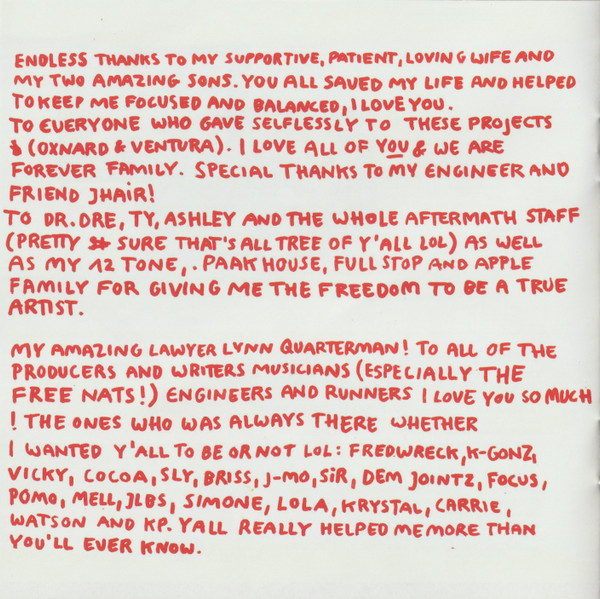 ENDLESS THANKS TO MY SUPPORTIVE, PATIENT, LOVING WIFE AND
MY TWO AMAZING SONS. YOU ALL SAVED MY LIFE AND HELPED
TO KEEP ME FOCUSED AND BALANCED, I LOVE YOU.
TO EVERYONE WHO GAVE SELFLESSLY TO THESE PROJECTS
(OXNARD & VENTURA). I LOVE ALL OF YOU & WE ARE
FOREVER FAMILY. SPECIAL THANKS TO MY ENGINEER AND
FRIEND JHAIR!
TO DR. DRE, TY, ASHLEY AND THE WHOLE AFTERMATH STAFF
(PRETTY SURE THAT'S ALL TREE OF Y'ALL LOL) AS WELL
AS MY 12 TONE, . PAAK HOUSE, FULL STOP AND APPLE
FAMILY FOR GIVING ME THE FREEDOM TO BE A TRUE
ARTIST.
MY AMAZING LAWYER LYNN QUARTERMAN! TO ALL OF THE
PRODUCERS AND WRITERS MUSICIANS (ESPECIALLY THE
FREE NATS!) ENGINEERS AND RUNNERS I LOVE YOU SO MUCH
! THE ONES WHO WAS ALWAYS THERE WHETHER
I WANTED Y'ALL TO BE OR NOT LOL: FREDWRECK, K-GONZ,
VICKY, COCOA, SLY, BRISS, J-MO, SiR, DEM JOINTZ, FOCUS,
POMO, MELL, JLBS, SIMONE, LOLA, KRYSTAL, CARRIE,
WATSON AND KP. YALL REALLY HELPED ME MORE THAN
YOU'LL EVER KNOW.